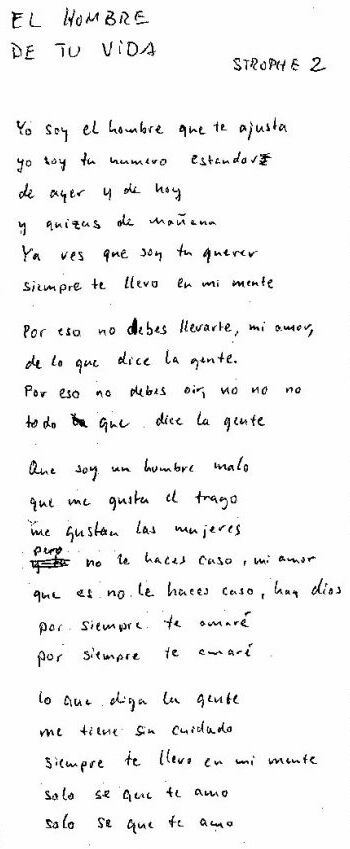 EL HOMBRE
DE TU VIDA
STROPHE 2
Yo soy el hombre que te ajusta
yo soy tu numero estandar
de ayer y de hoy
y quizas de mañana
Ya ves que soy tu querer
siempre te llevo en mi mente
Por eso no debes llevarte, mi amor,
de lo que dice la gente.
Por eso no debes oir, no no no
todo que dice la gente
Que soy un hombre malo
que me gusta el trago
me gustan las mujeres
pero
no le haces caso, mi amor
que es no le haces caso, hay dios
por siempre te amaré
por siempre te amaré
lo que diga la gente
me tiene sin cuidado
siempre te llevo en mi mente
solo se que te amo
solo se que te amo